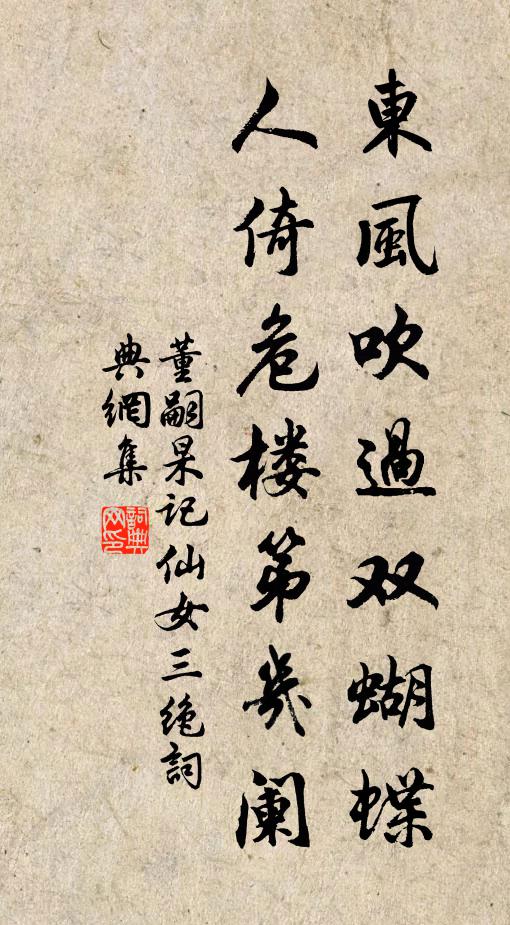 東風吹過双蝴蝶
人倚危楼第幾闌
董嗣杲记仙女三绝詞
典網集
詞典網印